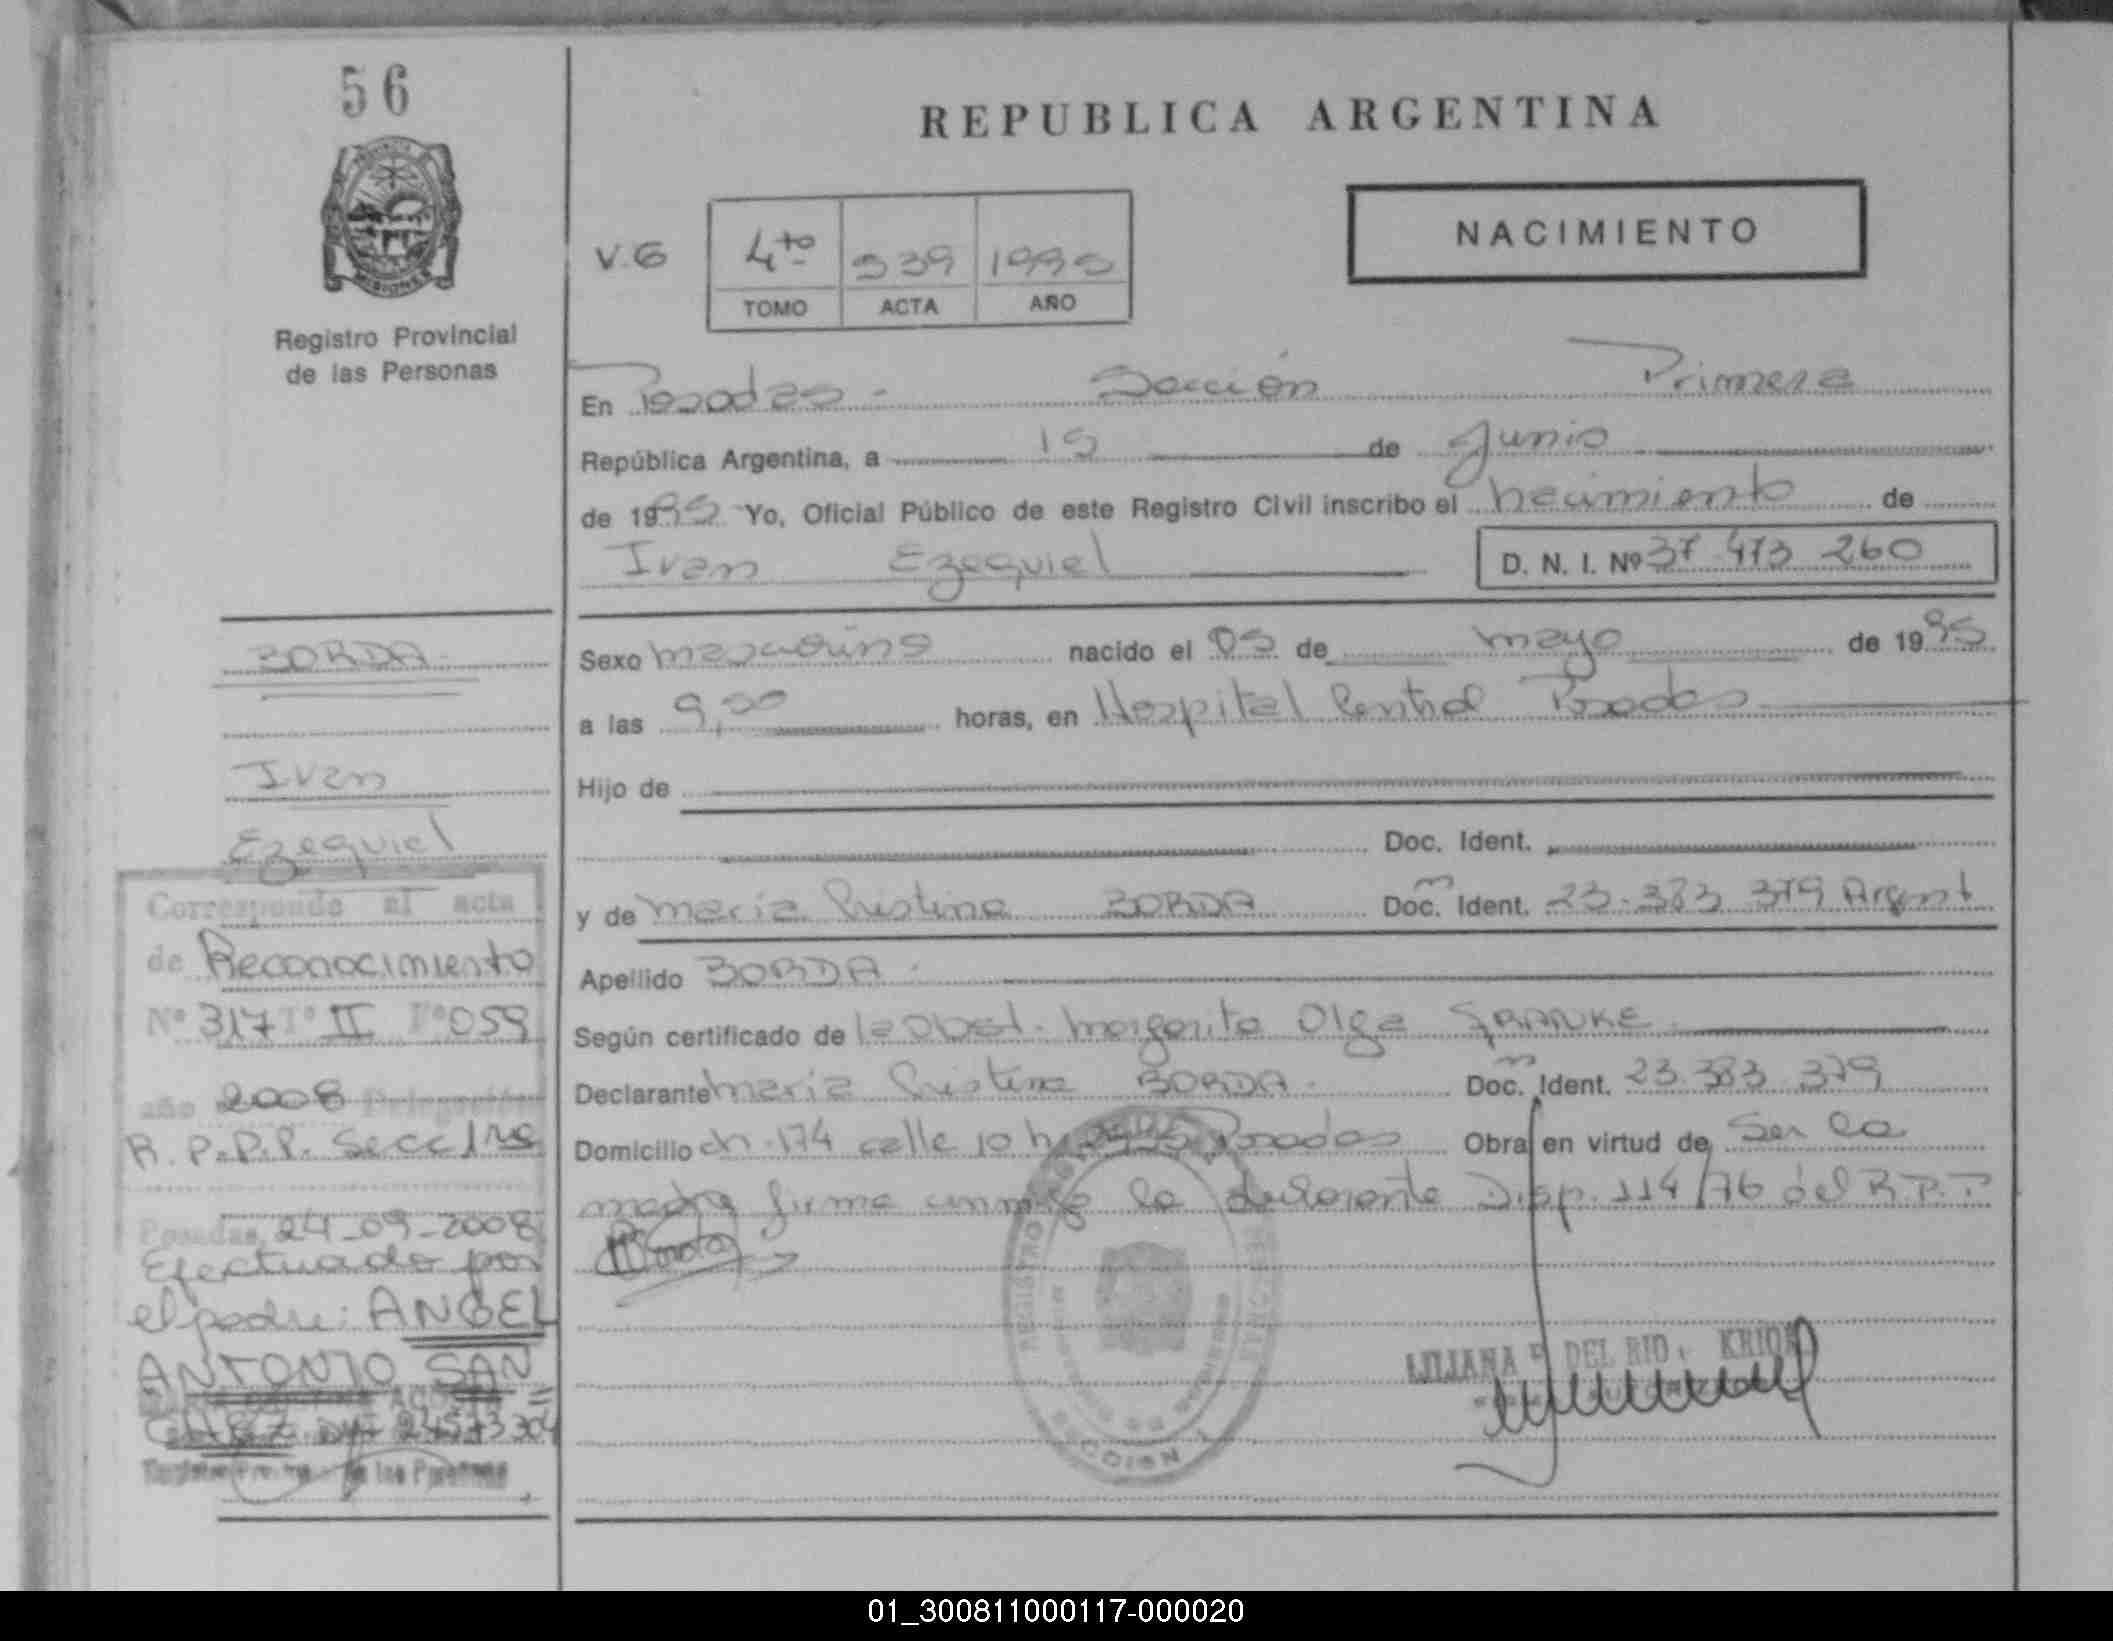 56
REPUBLICA ARGENTINA
NACIMIENTO
V.G
4to 539 1995
TOMO ACTA AÑO
Registro Provincial
de las Personas
En Posadas - Sección Primera
República Argentina, a 15 de Junio
de 1995 Yo, Oficial Público de este Registro Civil inscribo el nacimiento de
Ivan Ezequiel D. N. I. Nº 37.473 260
Sexo masculino nacido el 05 de mayo de 1995
a las 9,00 horas, en Hospital Central Posadas
Hijo de
Doc. Ident.
y de Maria Cristina BORDA Doc. Ident. 23.383 379 Argent
Apellido BORDA.
Según certificado de Isabel Margarita Olga FRANKE
Declarante Maria Cristina BORDA. Doc. Ident. 23.383.379
Domicilio ch. 174 calle 10 Posadas Obra en virtud de Ser la
madre firma conmigo la declarante Disp. 114/76 del R.P.P
BORDA
Ivan
Ezequiel
Corresponde al acta
de Reconocimiento
Nº 317 Tº II Fº 059
año 2008 Delegación
R.P.P.P. Secc 1ra
Posadas, 24-09-2008
Efectuado por
el padre: ANGEL
ANTONIO SAN
Registro Prov. de las Personas
REGISTRO
SECCION 1
LILIANA DEL RIO
01_300811000117-000020